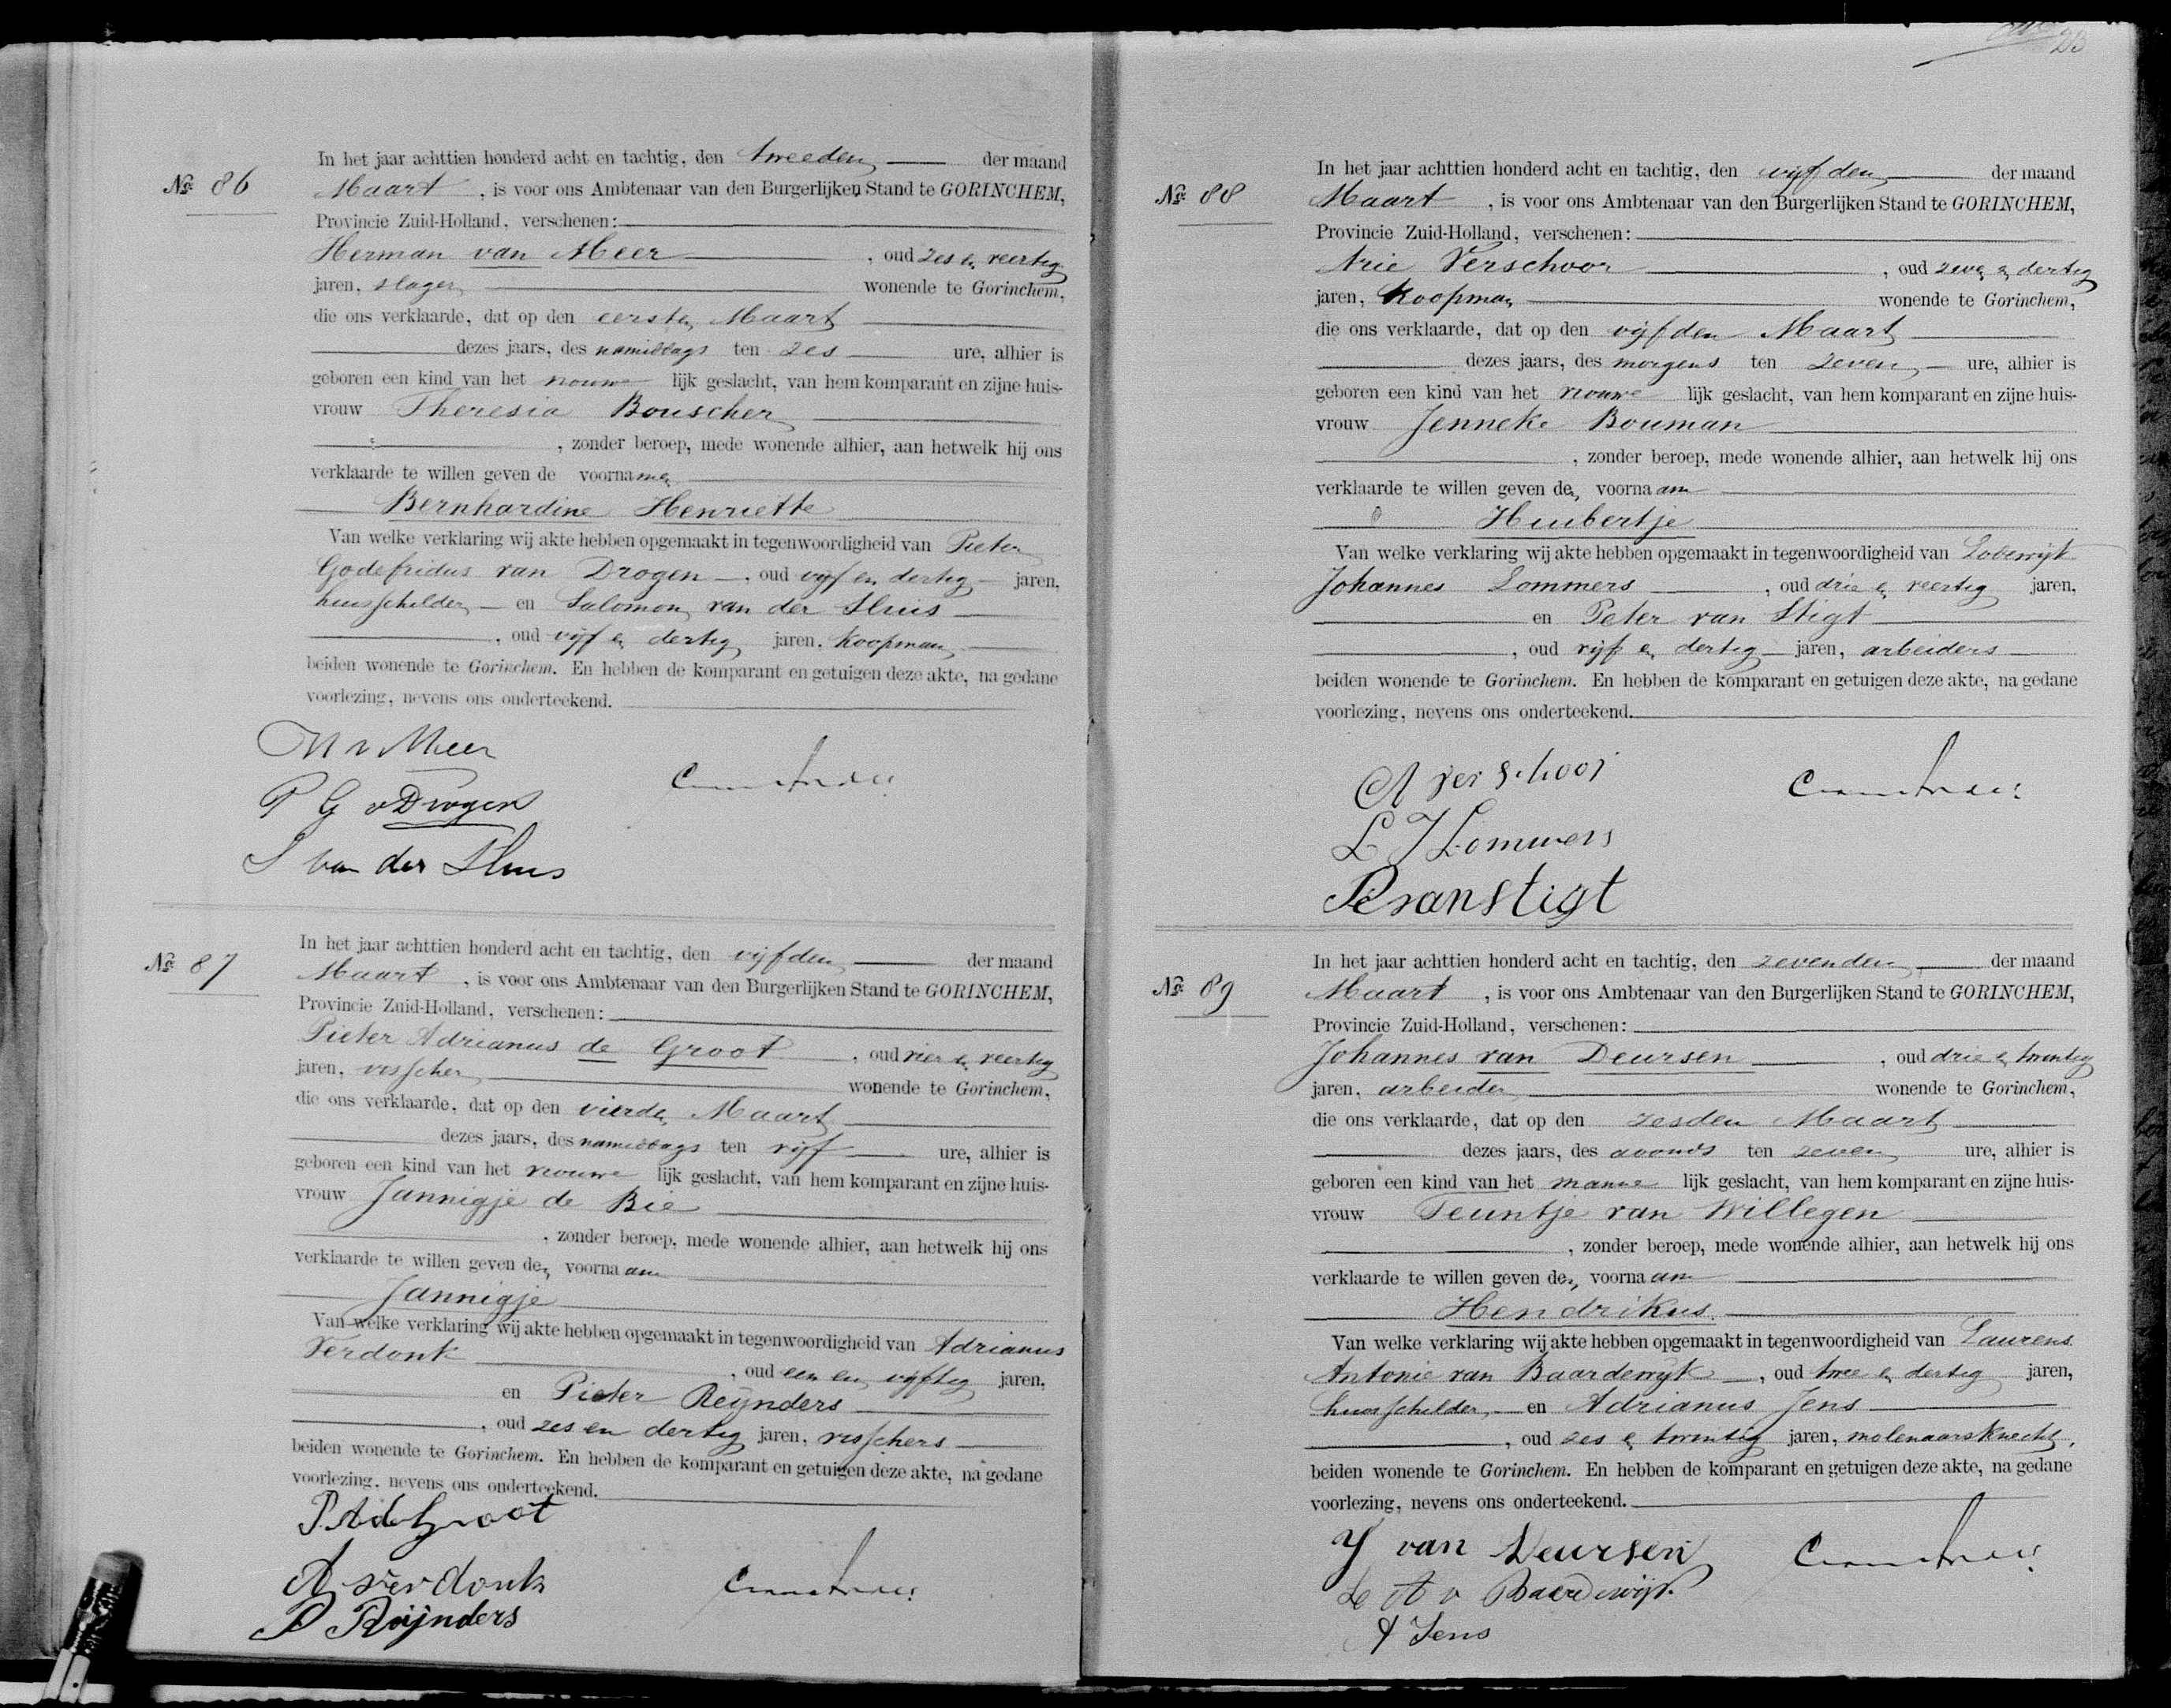 No. 86
In het jaar achttien honderd acht en tachtig, den tweeden der maand
Maart, is voor ons Ambtenaar van den Burgerlijken Stand te GORINCHEM,
Provincie Zuid-Holland, verschenen:
Herman van Meer, oud zes en veertig
jaren, slager wonende te Gorinchem,
die ons verklaarde, dat op den eersten Maart
dezes jaars, des namiddags ten zes ure, alhier is
geboren een kind van het vrouwelijk geslacht, van hem komparant en zijne huis-
vrouw Theresia Bouscher
, zonder beroep, mede wonende alhier, aan hetwelk hij ons
verklaarde te willen geven de voornamen
Bernhardine Henriette
Van welke verklaring wij akte hebben opgemaakt in tegenwoordigheid van Pieter
Godefridus van Drogen, oud vijf en dertig jaren,
huisschilder en Salomon van der Sluis
, oud vijf en dertig jaren, koopman,
beiden wonende te Gorinchem. En hebben de komparant en getuigen deze akte, na gedane
voorlezing, nevens ons onderteekend.
H v Meer
P G v Drogen
S van der Sluis
No. 87
In het jaar achttien honderd acht en tachtig, den vijfden der maand
Maart, is voor ons Ambtenaar van den Burgerlijken Stand te GORINCHEM,
Provincie Zuid-Holland, verschenen:
Pieter Adrianus de Groot, oud vier en veertig
jaren, visscher wonende te Gorinchem,
die ons verklaarde, dat op den vierden Maart
dezes jaars, des namiddags ten vijf ure, alhier is
geboren een kind van het vrouwelijk geslacht, van hem komparant en zijne huis-
vrouw Jannigje de Bie
, zonder beroep, mede wonende alhier, aan hetwelk hij ons
verklaarde te willen geven den voornaam
Jannigje
Van welke verklaring wij akte hebben opgemaakt in tegenwoordigheid van Adrianus
Verdonk, oud een en vijftig jaren,
en Pieter Reijnders
, oud zes en dertig jaren, visschers
beiden wonende te Gorinchem. En hebben de komparant en getuigen deze akte, na gedane
voorlezing, nevens ons onderteekend.
P. A de Groot
A verdonk
P Reijnders
No. 88
In het jaar achttien honderd acht en tachtig, den vijfden der maand
Maart, is voor ons Ambtenaar van den Burgerlijken Stand te GORINCHEM,
Provincie Zuid-Holland, verschenen:
Arie Verschoor, oud zeven en dertig
jaren, Koopman wonende te Gorinchem,
die ons verklaarde, dat op den vijfden Maart
dezes jaars, des morgens ten zeven ure, alhier is
geboren een kind van het vrouwelijk geslacht, van hem komparant en zijne huis-
vrouw Jenneke Bouman
, zonder beroep, mede wonende alhier, aan hetwelk hij ons
verklaarde te willen geven den voornaam
Huibertje
Van welke verklaring wij akte hebben opgemaakt in tegenwoordigheid van Lodewijk
Johannes Lommers, oud drie en veertig jaren,
en Peter van Stigt
, oud vijf en dertig jaren, arbeiders
beiden wonende te Gorinchem. En hebben de komparant en getuigen deze akte, na gedane
voorlezing, nevens ons onderteekend.
A verschoor
L J Lommers
P van Stigt
No. 89
In het jaar achttien honderd acht en tachtig, den zevenden der maand
Maart, is voor ons Ambtenaar van den Burgerlijken Stand te GORINCHEM,
Provincie Zuid-Holland, verschenen:
Johannes van Deursen, oud drie en twintig
jaren, arbeider wonende te Gorinchem,
die ons verklaarde, dat op den zesden Maart
dezes jaars, des avonds ten zeven ure, alhier is
geboren een kind van het mannelijk geslacht, van hem komparant en zijne huis-
vrouw Teuntje van Willegen
, zonder beroep, mede wonende alhier, aan hetwelk hij ons
verklaarde te willen geven den voornaam
Hendrikus.
Van welke verklaring wij akte hebben opgemaakt in tegenwoordigheid van Laurens
Antonie van Baardewijk, oud twee en dertig jaren,
huisschilder, en Adrianus Jens
, oud zes en twintig jaren, molenaarsknecht,
beiden wonende te Gorinchem. En hebben de komparant en getuigen deze akte, na gedane
voorlezing, nevens ons onderteekend.
J van Deursen
L A v Baardewijk.
A Jens